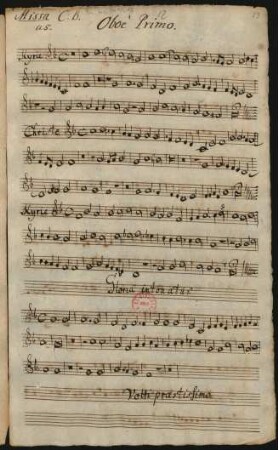 Missa C. B.
Oboè Primo.
Kyrie
Christe
Kyrie
Gloria intonatur
Volti praestissimo